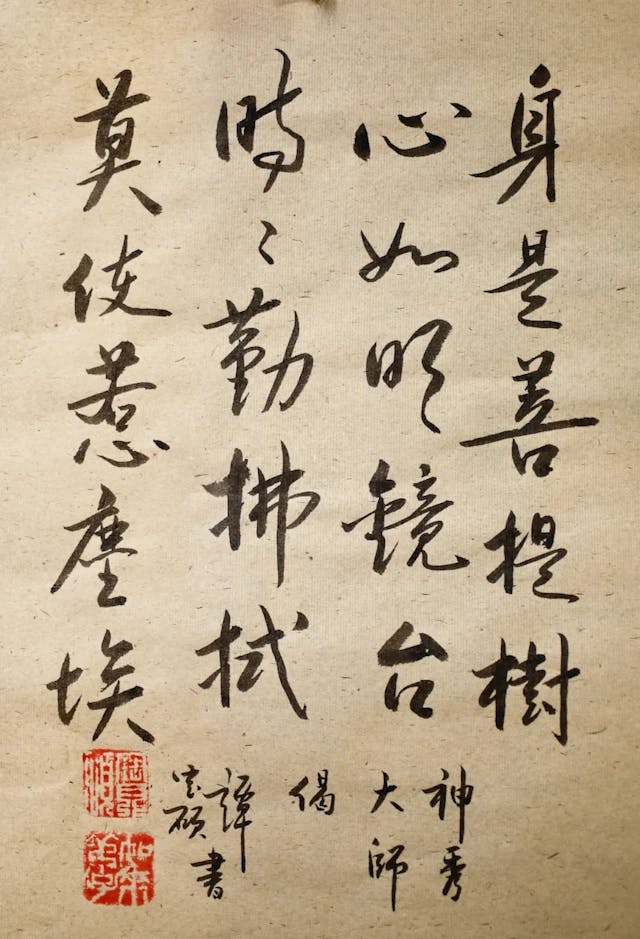 身是菩提樹
心如明鏡台
時〻勤拂拭
莫使惹塵埃
神秀
大師
偈
譚
書